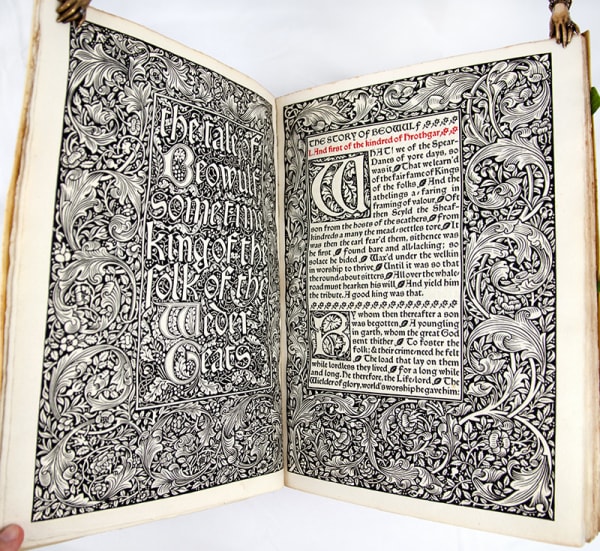 the tale of
Beowulf
Sometime
king of the
folk of the
Weder
Geats
THE STORY OF BEOWULF
I. And first of the kindred of Hrothgar
WHAT! we of the Spear-
Danes of yore days, so
was it That we learn'd
of the fair fame of Kings
of the folks And the
athelings a-faring in
framing of valour. Oft
then Scyld the Sheaf-
son from the hosts of the scathers, From
kindreds a many the mead-settles tore; It
was then the earl fear'd them, sithence was
he first Found bare and all-lacking; so
solace he bided, Wax'd under the welkin
in worship to thrive, Until it was so that
the round-about sitters All over the whale-
road must hearken his will And yield him
the tribute. A good king was that.
By whom then thereafter a son
was begotten, A youngling
in garth, whom the great God
sent thither To foster the
folk; & their crime-need he felt
The load that lay on them
while lordless they lived For a long while
and long. He therefore, the Life-lord The
Wielder of glory, world's worship he gave him: